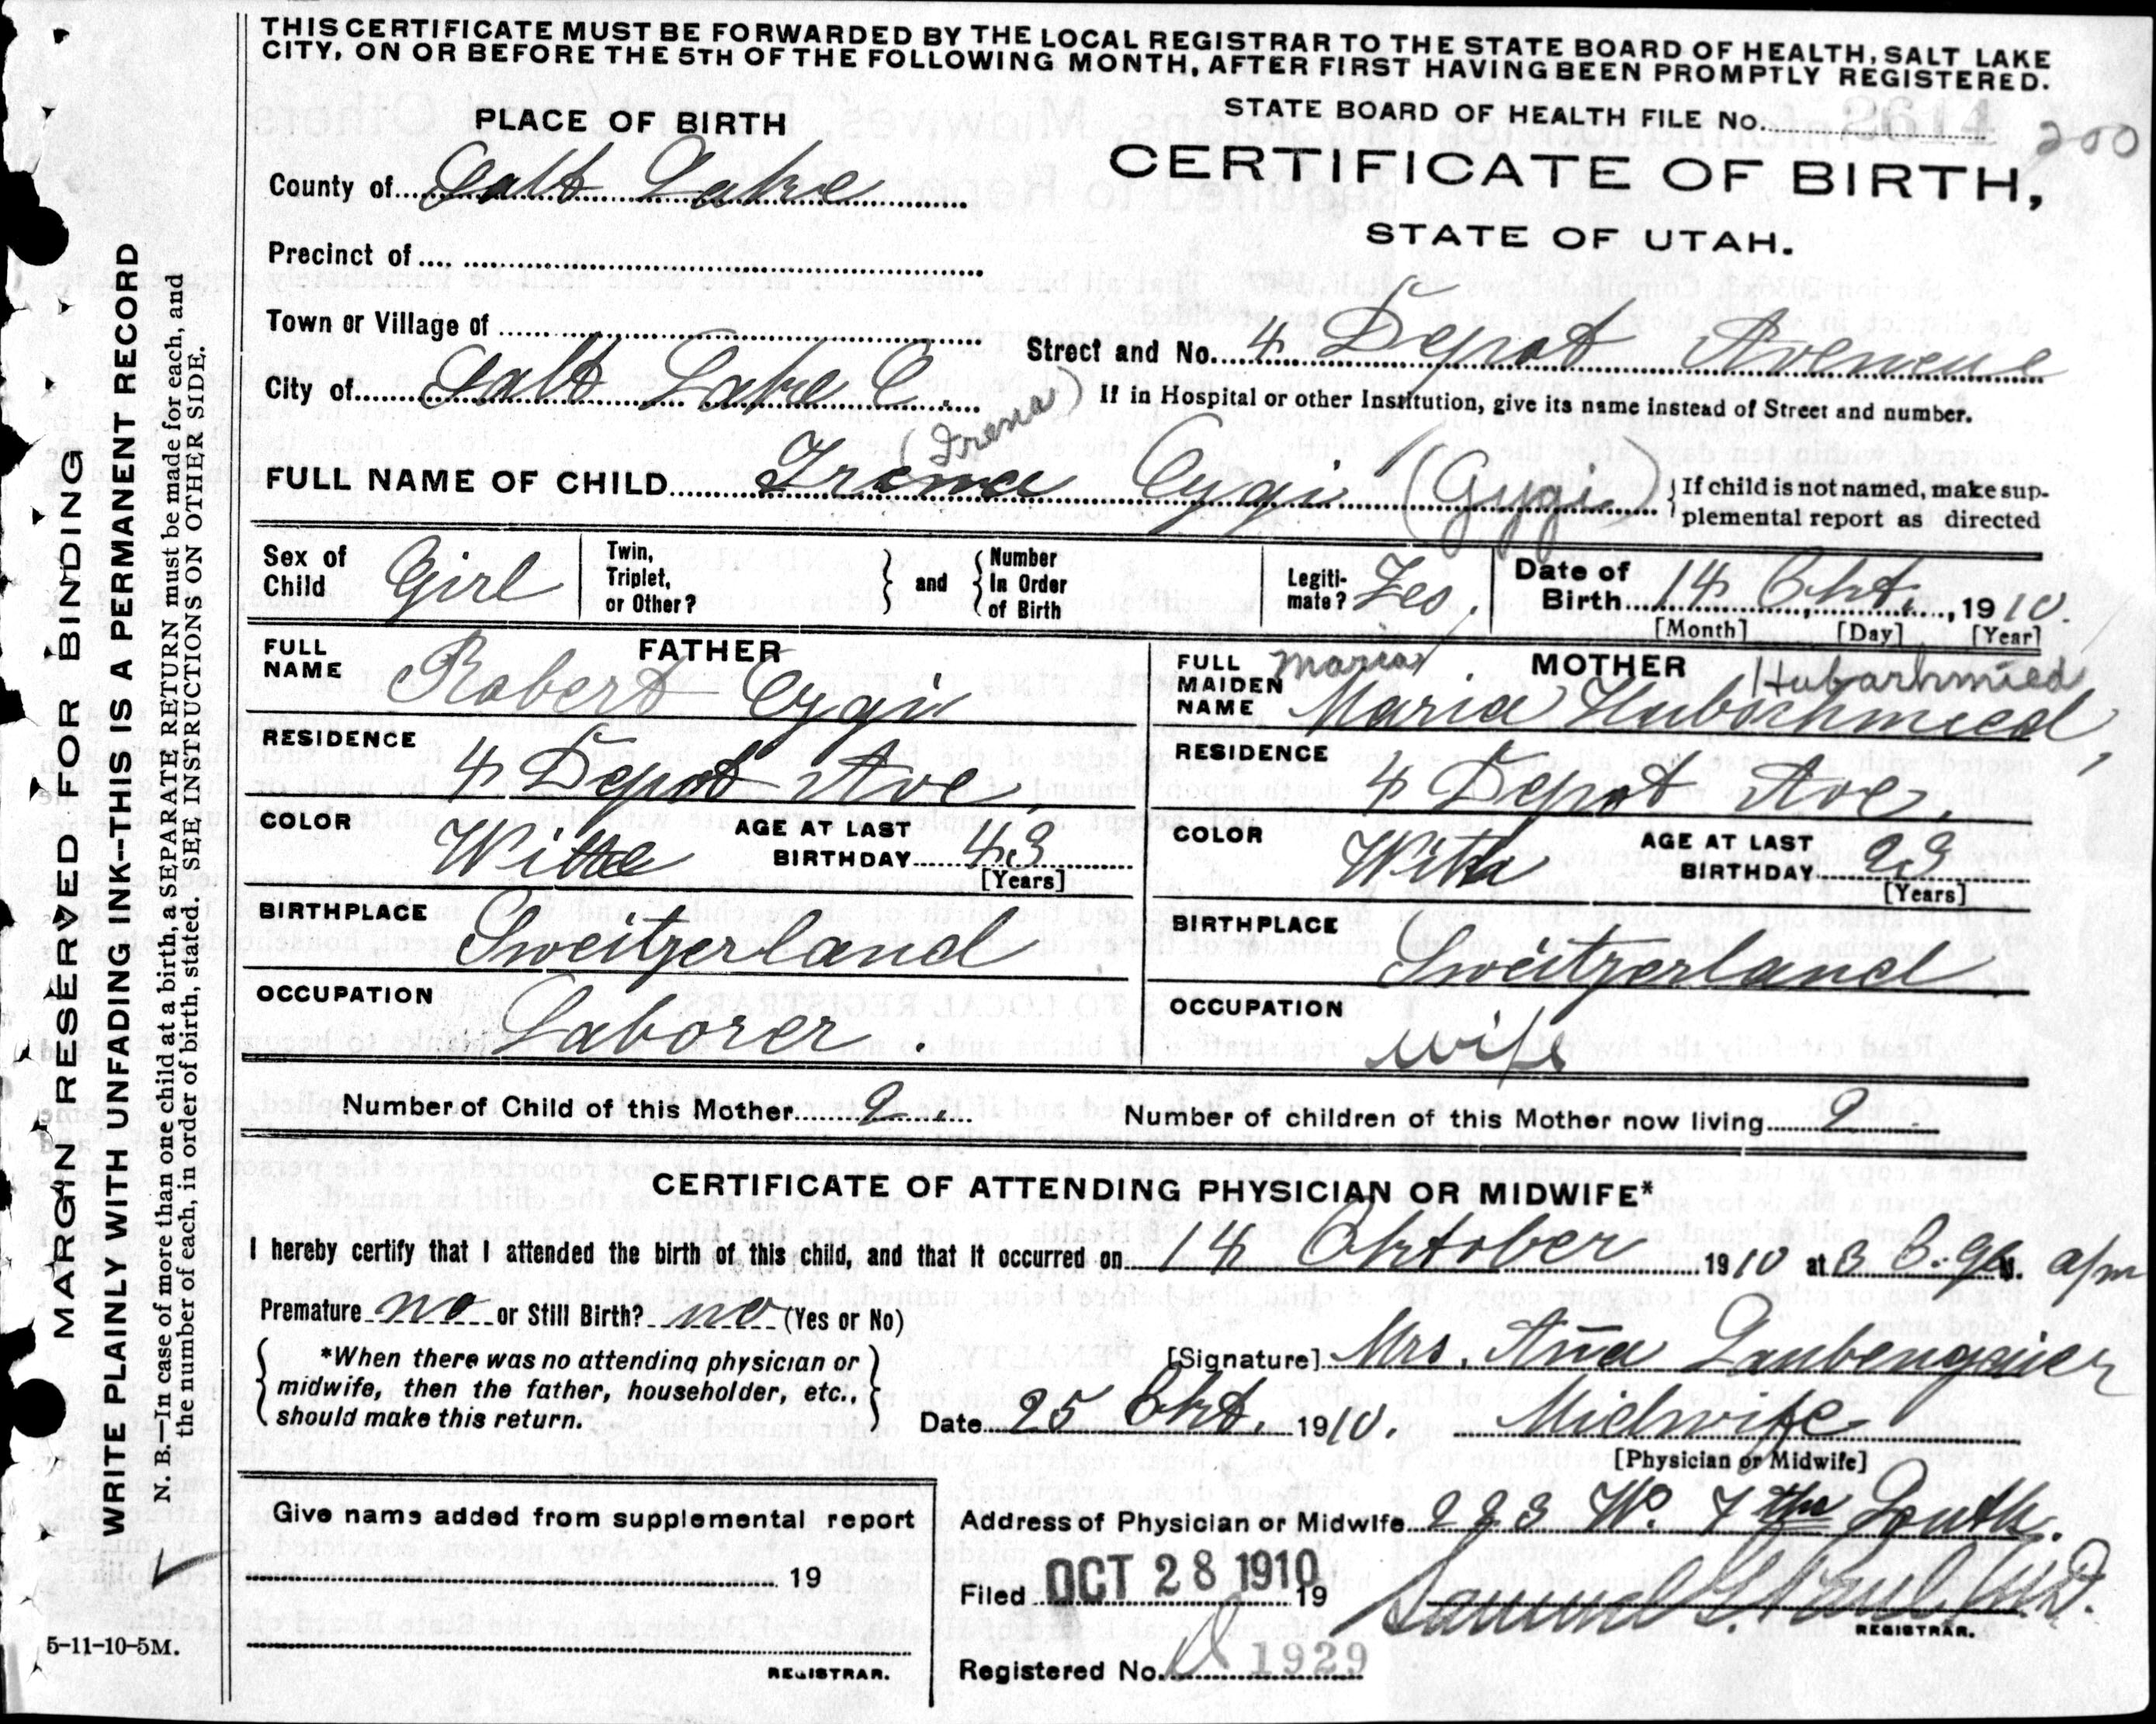 THIS CERTIFICATE MUST BE FORWARDED BY THE LOCAL REGISTRAR TO THE STATE BOARD OF HEALTH, SALT LAKE
CITY, ON OR BEFORE THE 5TH OF THE FOLLOWING MONTH, AFTER FIRST HAVING BEEN PROMPTLY REGISTERED.
STATE BOARD OF HEALTH FILE No. 2614 200
PLACE OF BIRTH
CERTIFICATE OF BIRTH,
STATE OF UTAH.
County of Salt Lake
Precinct of
Town or Village of
Street and No. 4 Depot Aveneue
City of Salt Lake C.
If in Hospital or other Institution, give its name instead of Street and number.
(Irena)
FULL NAME OF CHILD Cygi (Gygi) { If child is not named, make sup-
plemental report as directed
Sex of Child Girl
Twin, Triplet, or Other? } and { Number In Order of Birth
Legiti-mate? Yes.
Date of Birth 14 Okt. , 1910.
[Month] [Day] [Year]
FATHER
FULL NAME Robert Cygi
RESIDENCE 4 Depot Ave.
COLOR Witte
AGE AT LAST BIRTHDAY 43
[Years]
BIRTHPLACE Sweitzerland
OCCUPATION Laborer.
MOTHER
Maria Hubarhmied
FULL MAIDEN NAME Maria Hubschmied,
RESIDENCE 4 Depot Ave.
COLOR Witte
AGE AT LAST BIRTHDAY 23
[Years]
BIRTHPLACE Sweitzerland
OCCUPATION wife
Number of Child of this Mother 2.
Number of children of this Mother now living 2
CERTIFICATE OF ATTENDING PHYSICIAN OR MIDWIFE*
I hereby certify that I attended the birth of this child, and that it occurred on 14 Oktober 1910 at 3 M. a/m
Premature no or Still Birth? no (Yes or No)
{ *When there was no attending physician or
midwife, then the father, householder, etc.,
should make this return. }
[Signature] Mrs. Anna Laubengaier
Date 25 Okt. 1910. Midwife
[Physician or Midwife]
Give name added from supplemental report
19
REGISTRAR.
Address of Physician or Midwife 223 W. 7th South.
Filed OCT 28 1910 19
Samuel G. Paul M.D.
REGISTRAR.
Registered No. 1929
5-11-10-5M.
MARGIN RESERVED FOR BINDING
WRITE PLAINLY WITH UNFADING INK--THIS IS A PERMANENT RECORD
N. B.—In case of more than one child at a birth, a SEPARATE RETURN must be made for each, and
the number of each, in order of birth, stated. SEE INSTRUCTIONS ON OTHER SIDE.